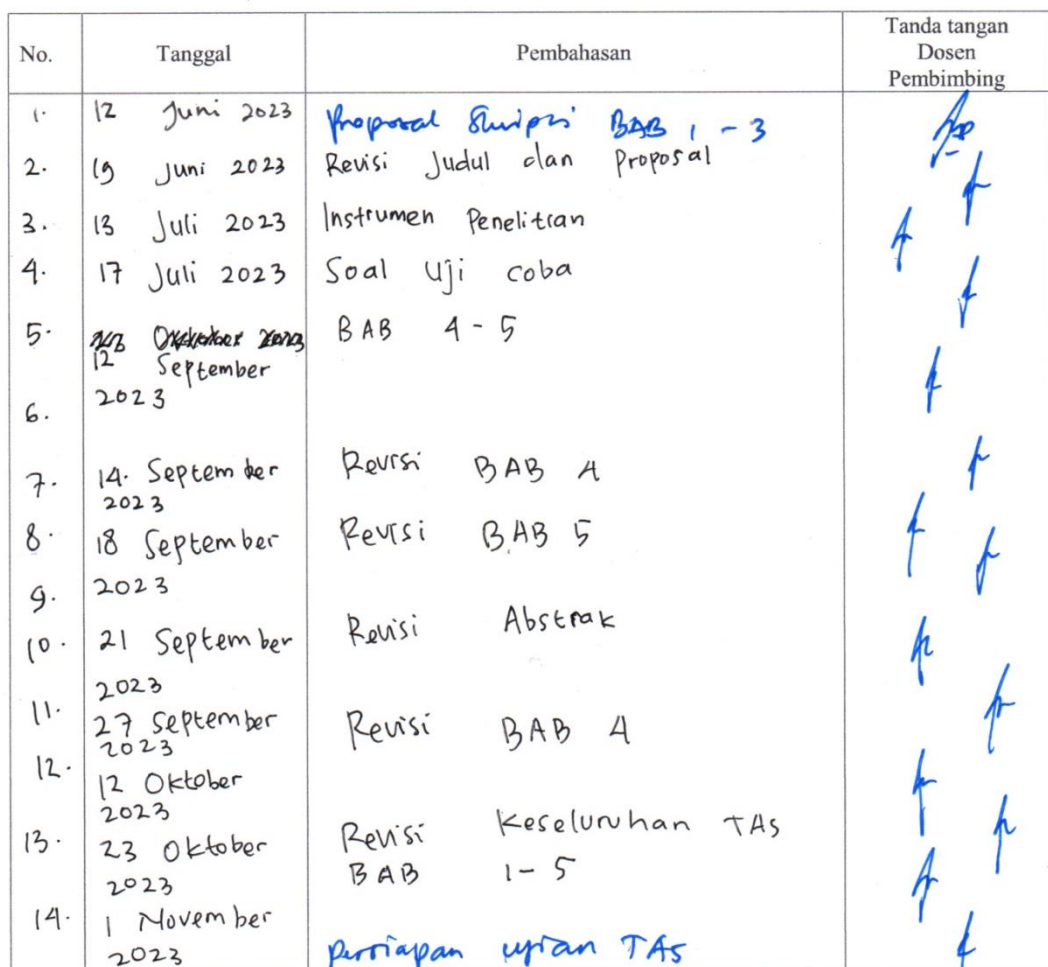 No. Tanggal Pembahasan Tanda tangan
Dosen
Pembimbing
1. 12 Juni 2023 Proposal Skripsi BAB 1 - 3
2. 19 Juni 2023 Revisi Judul dan Proposal
3. 13 Juli 2023 Instrumen Penelitian
4. 17 Juli 2023 Soal Uji coba
5. BAB 4 - 5
12 September
6. 2023
7. 14. September Revisi BAB 4
2023
8. 18 September Revisi BAB 5
9. 2023
10. 21 September Revisi Abstrak
2023
11. 27 September Revisi BAB 4
2023
12. 12 Oktober
2023
13. 23 Oktober Revisi Keseluruhan TAs
2023 BAB 1 - 5
14. 1 November
2023 Persiapan ujian TAs